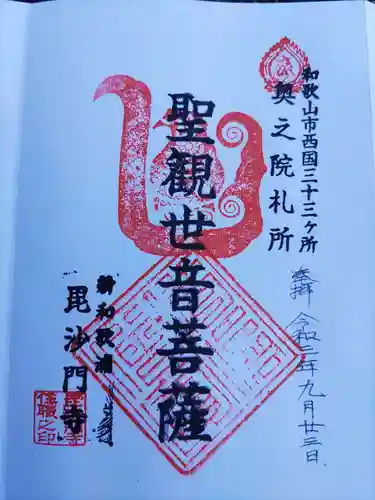 和歌山市西国三十三ケ所
奥之院札所
奉拝 令和二年九月廿三日
聖観世音菩薩
新和歌浦
毘沙門寺
毘沙門寺
住職之印